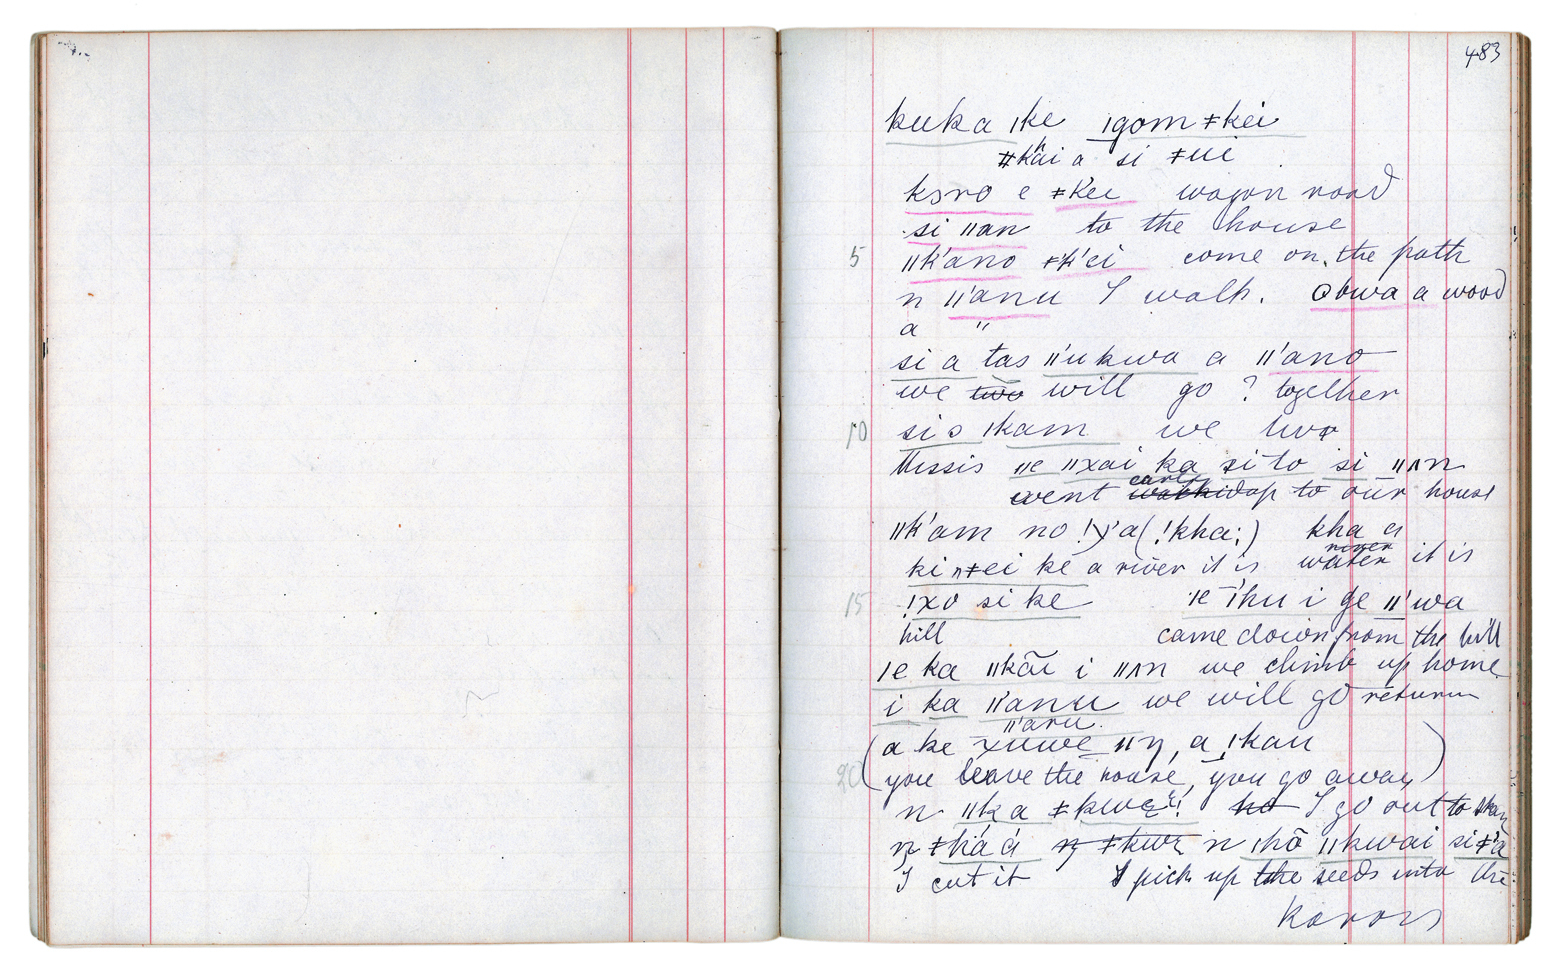 483
kuka ǀke ǀgom ǂkei
ǂkãi a si ǂui
koro e ǂk'ei wagon road
si ǁan to the house
5 ǁk'ano ǂk'ei come on the path
n ǁ'anu I walk. ʘbwa a wood
a "
si a tas ǁ'ukwa a ǁ'ano
we two will go ? together
10 si s ǀkam we two
Missis ǁe ǁxai ka si to si ǁʌn
went early to our house
ǁk'am no !x'a (!kha:) kha a
ki nǂei ke a river it is water river it is
15 !xo si ke ǀe ǀhu i ge ǁ'wa
hill came down from the hill
ǀe ka ǁkãi i ǁʌn we climb up home
i ka ǁ'anu we will go return
ǁ'aru.
(a ke xuwe ǁŋ, a !kau
20 you leave the house, you go away)
n ǁka ǂkwe ho I go out to
ŋ ǂhá á ŋ ǂkwe n ǀhõ ǁkwai si ǂ'a
I cut it I pick up the seeds into the
Karos